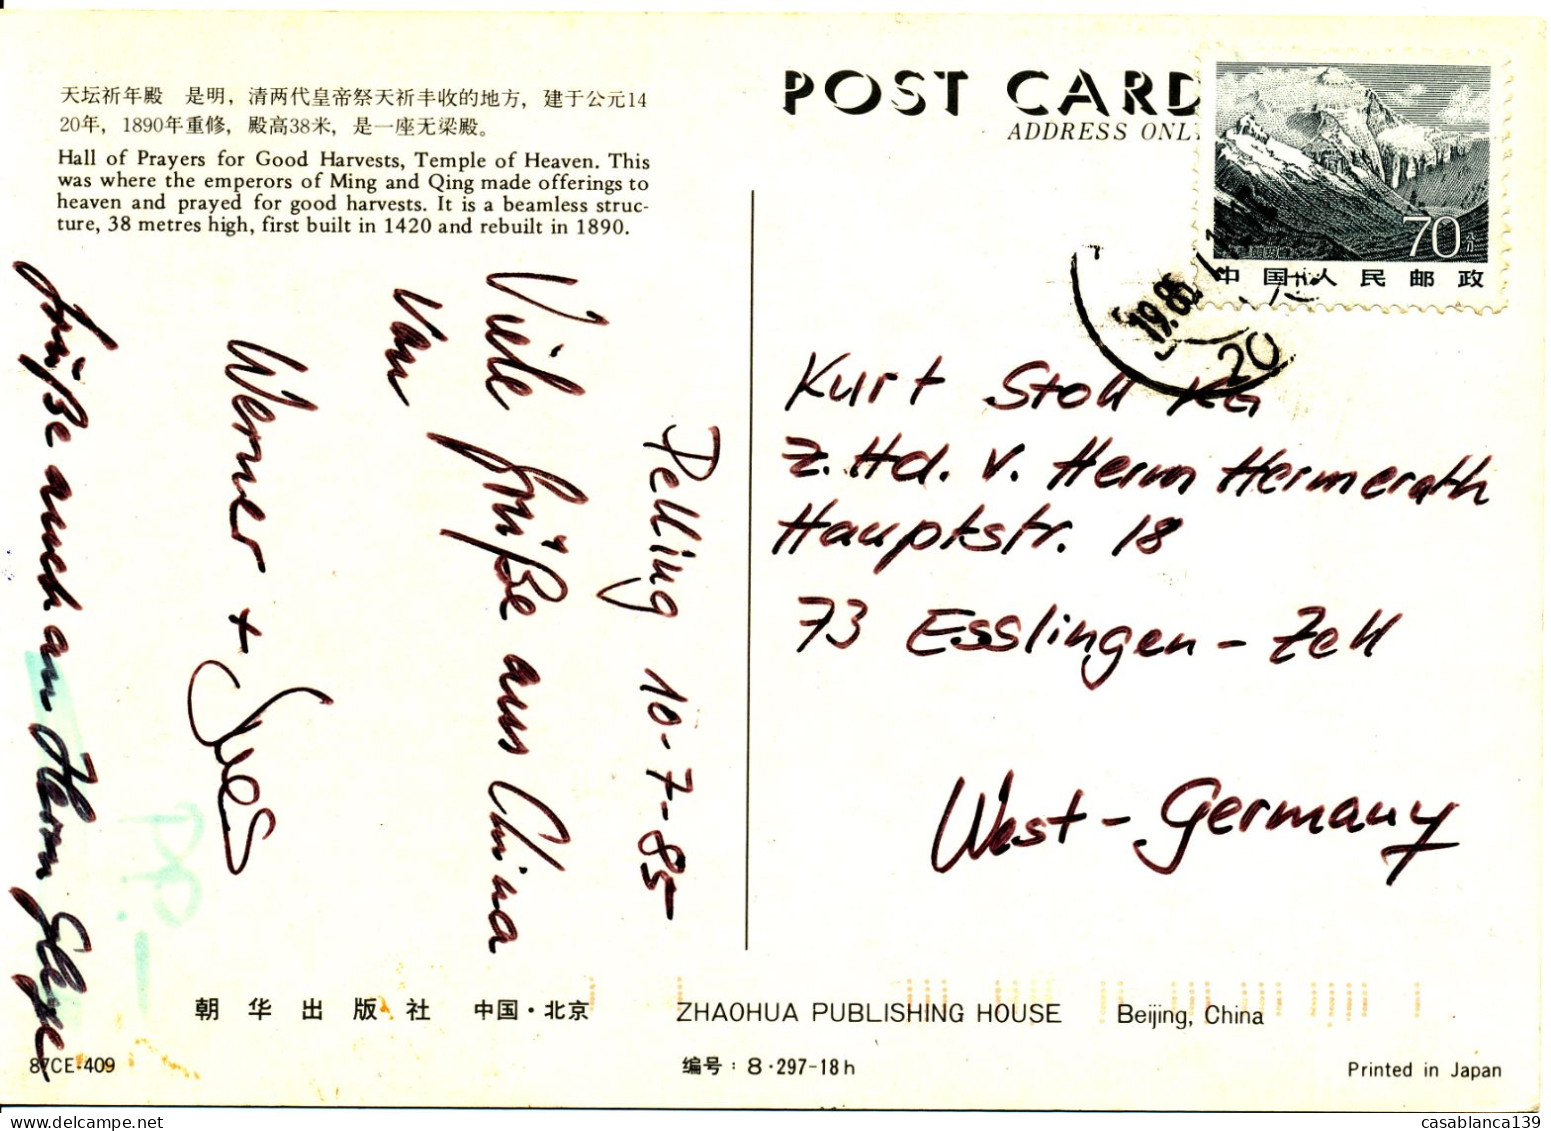 天坛祈年殿　是明，清两代皇帝祭天祈丰收的地方，建于公元14
20年，1890年重修，殿高38米，是一座无梁殿。
Hall of Prayers for Good Harvests, Temple of Heaven. This
was where the emperors of Ming and Qing made offerings to
heaven and prayed for good harvests. It is a beamless struc-
ture, 38 metres high, first built in 1420 and rebuilt in 1890.
Pelling 10-7-85
Viele Grüße aus China
Von
Werner +
Grüße auch an Herrn
POST CARD
ADDRESS ONLY
70分
中国人民邮政
19.85
20
Kurt Stoll KG
z. Hd. v. Herrn Hermerath
Hauptstr. 18
73 Esslingen - Zell
West - Germany
PP.-
朝华出版社 中国·北京 ZHAOHUA PUBLISHING HOUSE Beijing, China
87CE-409 编号：8·297-18h Printed in Japan
casablanca139